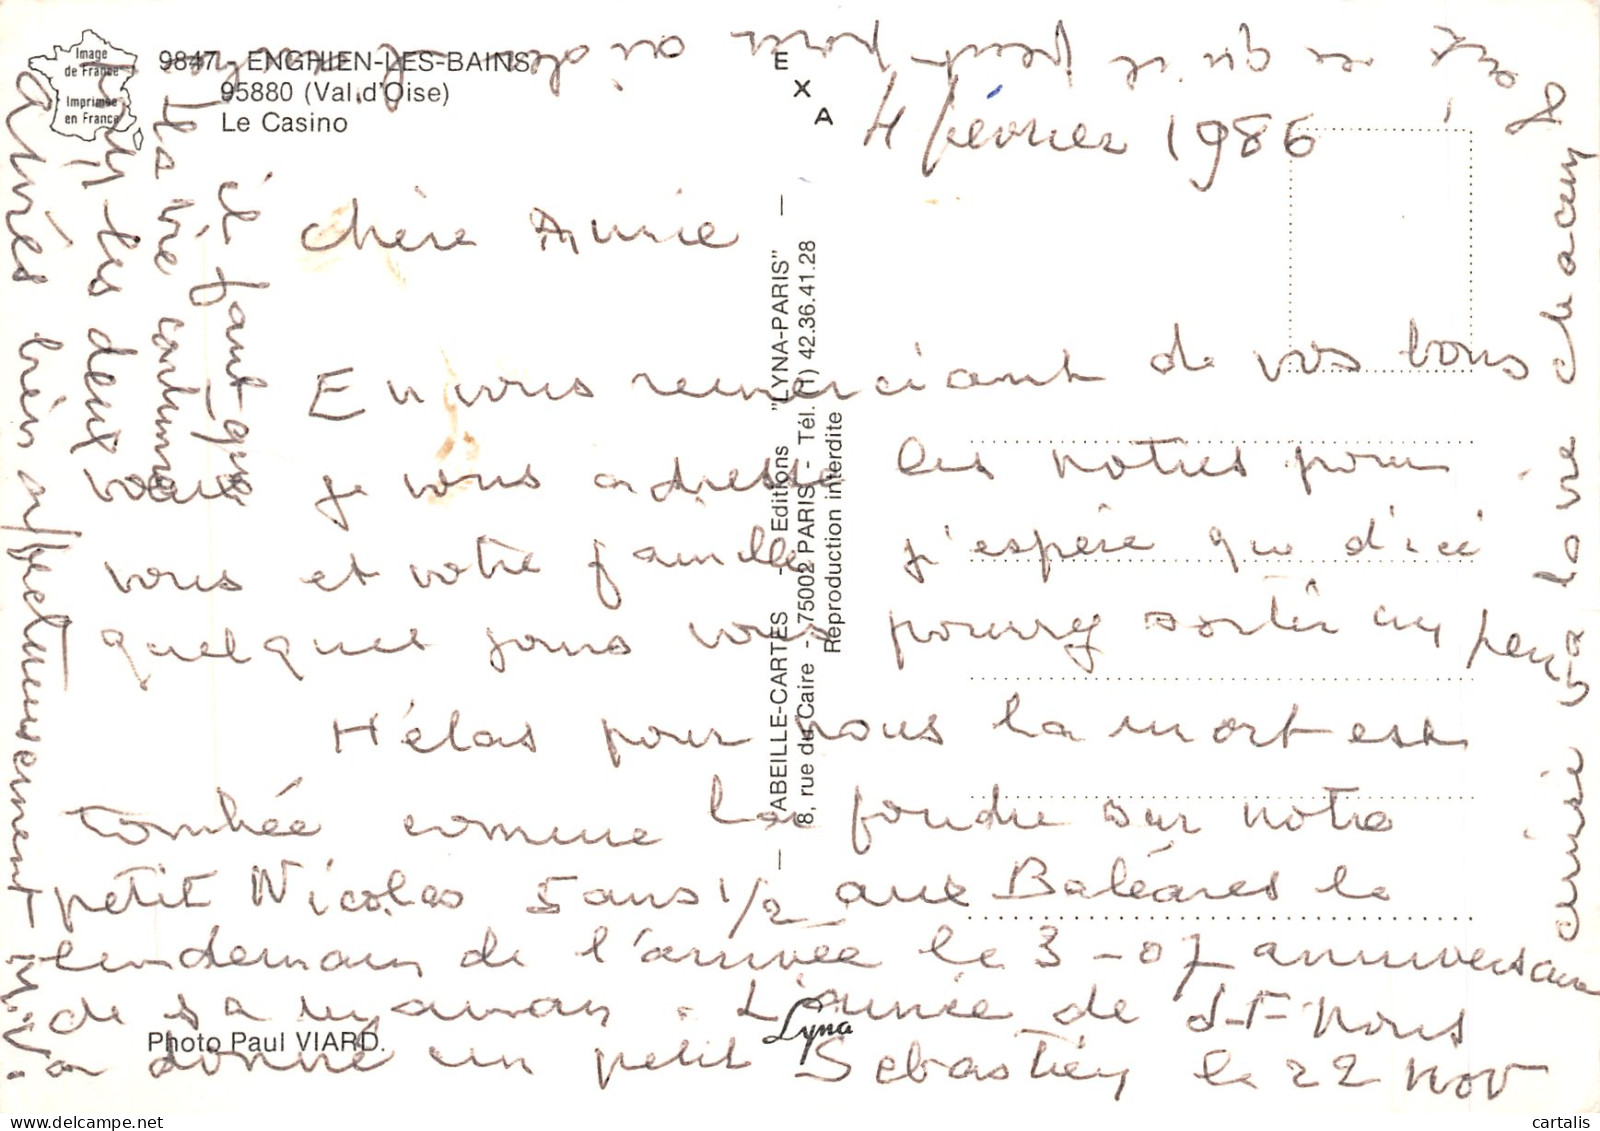 Image
de France
Imprimée
en France
9847 - ENGHIEN-LES-BAINS
95880 (Val d'Oise)
Le Casino
E
X
A
4 février 1986
Chère Annie
En vous remerciant de vos bons
vœux je vous adresse les notres pour
vous et votre famille j'espère que d'ici
quelques jours vous pourrez sortir un peu
Hélas pour nous la mort est
tombée comme la foudre sur notre
petit Nicolas 5 ans 1/2 aux Baléares le
lendemain de l'arrivée le 3-07 anniversaire
de sa maman. L'année de
nous
a donné un petit Sébastien le 22 nov
amie va la vie chacun
c'est ce qu'il peut
il faut que
la vie continue
les deux
Amitiés bien affectueusement
— ABEILLE-CARTES - Editions "LYNA-PARIS" —
8, rue du Caire - 75002 PARIS - Tél. (1) 42.36.41.28
Reproduction interdite
Lyna
Photo Paul VIARD.
cartalis